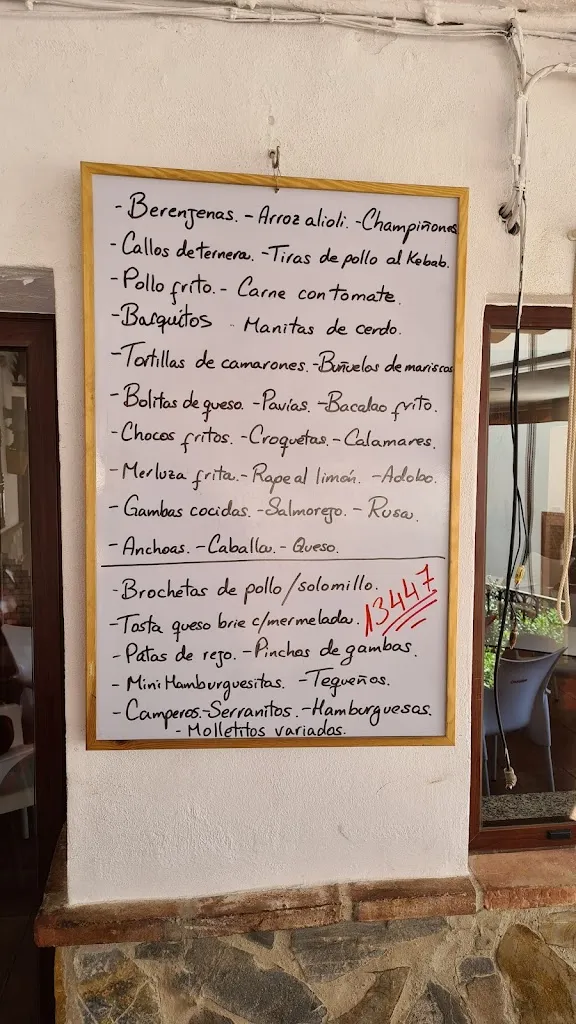 - Berenjenas. - Arroz alioli. - Champiñones
- Callos de ternera. - Tiras de pollo al Kebab.
- Pollo frito. - Carne con tomate.
- Barquitos - Manitas de cerdo.
- Tortillas de camarones. - Buñuelos de mariscos
- Bolitas de queso. - Pavías. - Bacalao frito.
- Chocos fritos. - Croquetas. - Calamares.
- Merluza frita. - Rape al limón. - Adobo.
- Gambas cocidas. - Salmorejo. - Rusa.
- Anchoas. - Caballa. - Queso.
- Brochetas de pollo / solomillo.
- Tosta queso brie c/mermelada. 13447
- Patas de rejo. - Pinchos de gambas.
- Mini Hamburguesitas. - Tequeños.
- Camperos. - Serranitos. - Hamburguesas.
- Molletitos variados.